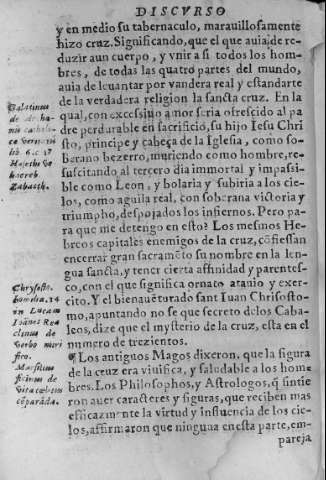 DISCVRSO
y en medio su tabernaculo, marauillosamente
hizo cruz. Significando, que el que auia de re-
duzir a un cuerpo, y vnir a si todos los hom-
bres, de todas las quatro partes del mundo,
auia de leuantar por vandera real y estandarte
de la verdadera religion la sancta cruz. En la
qual, con excessiuo amor seria ofrescido al pa
dre perdurable en sacrificio, su hijo Iesu Chri
sto, principe y cabeça de la Iglesia, como so-
berano bezerro, muriendo como hombre, re-
suscitando al tercero dia immortal y impassi-
ble como Leon, y bolaria y subiria a los cie-
los, como aguila real, con soberana victoria y
triumpho, despojados los infiernos. Pero pa-
ra que me detengo en esto? Los mesmos He-
breos capitales enemigos de la cruz, cõfiessan
encerrar gran sacramẽto su nombre en la len-
gua sancta, y tener cierta affinidad y parentes-
co, con el que significa ornato atauio y exer-
cito. Y el bienauẽturado sant Iuan Chrisosto-
mo, apuntando no se que secreto delos Caba-
leos, dize que el mysterio de la cruz, esta en el
numero de trezientos.
¶ Los antiguos Magos dixeron, que la figura
de la cruz era viuifica, y saludable a los hom-
bres. Los Philosophos, y Astrologos, q̃ sintie
ron auer caracteres y figuras, que reciben mas
efficazmente la virtud y influencia de los cie-
los, affirmaron que ninguna en esta parte, em-
pareja
Galatinus
de
lib. 6. c. 17
Zabaoth.
Chrysosto.
homilia. 14
in Lucam
Ioãnes Reu
clinus de
Verbo miri
fico.
Marsilius
ficinus de
vita cœlitus
cõparãda.